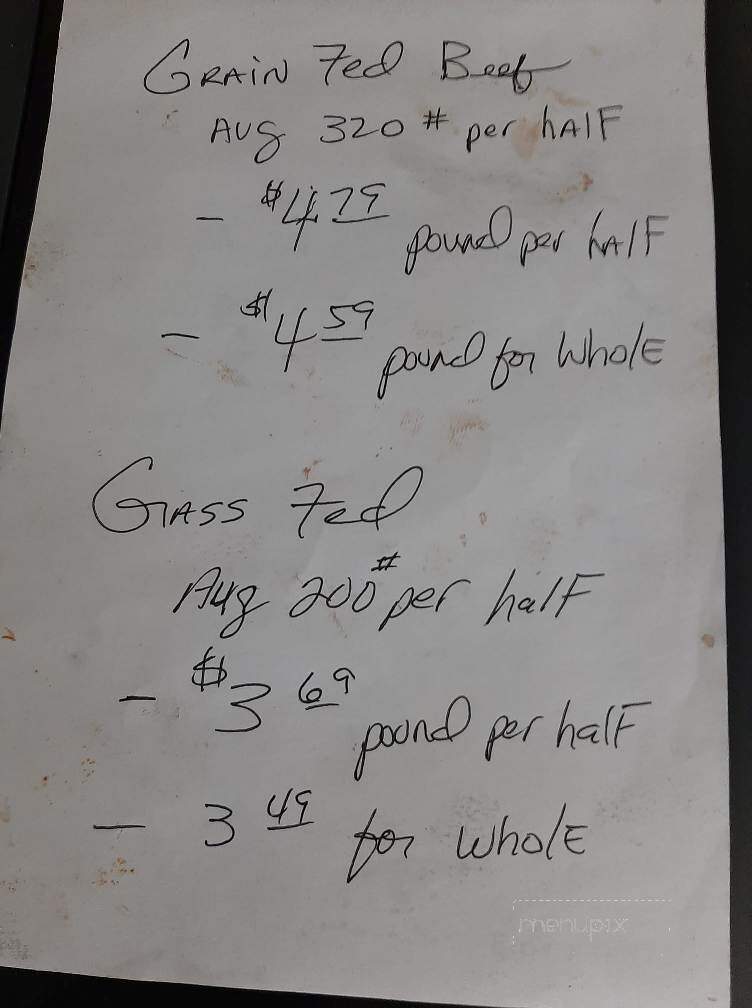 GRAIN Fed Beef
AUG 320 # per hAlF
- $4 79 pound per hAlF
- $4 59 pound for WholE
GrASS Fed
Aug 200 # per halF
- $3 69 pound per halF
- 3 49 for WholE
menupix